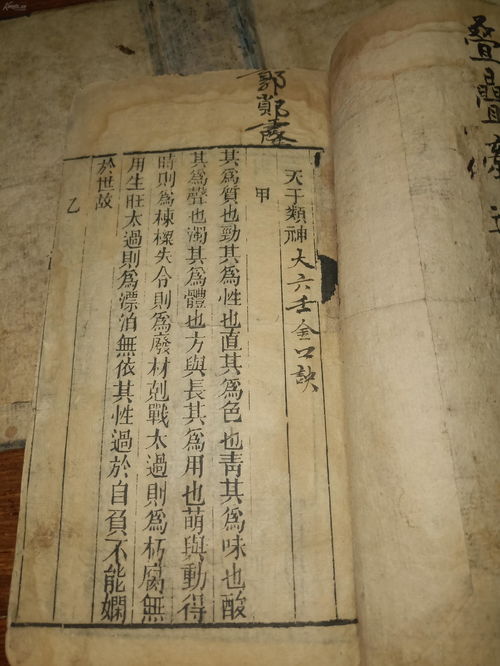 叠疊
郭鄭
天干類神 大六壬金口訣
甲
其為質也勁其為性也直其為色也靑其為味也酸
其為聲也濁其為體也方與長其為用也萌與動得
時則為棟樑失令則為廢材剋戰太過則為朽腐無
用生旺太過則為漂泊無依其性過於自負不能嫻
於世故
乙